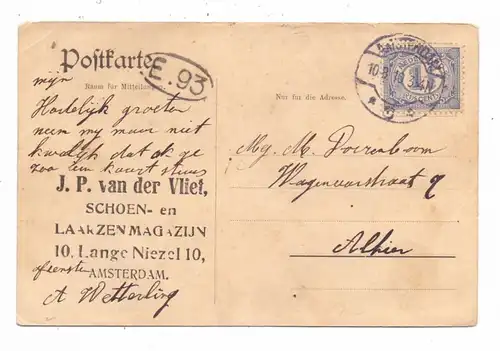 Postkarte
E. 93
Raum für Mitteilungen
Nur für die Adresse.
AMSTERDAM
mijn
Hartelijk groeten
neem my maar niet
kwalijk dat ik je
zoo een kaart stuur
J. P. van der Vlief,
SCHOEN- en
LAARZENMAGAZIJN
10, Lange Niezel 10,
AMSTERDAM.
A Wetterling
Mej. M. Doorenboom
Wagenaarstraat 9
Alhier